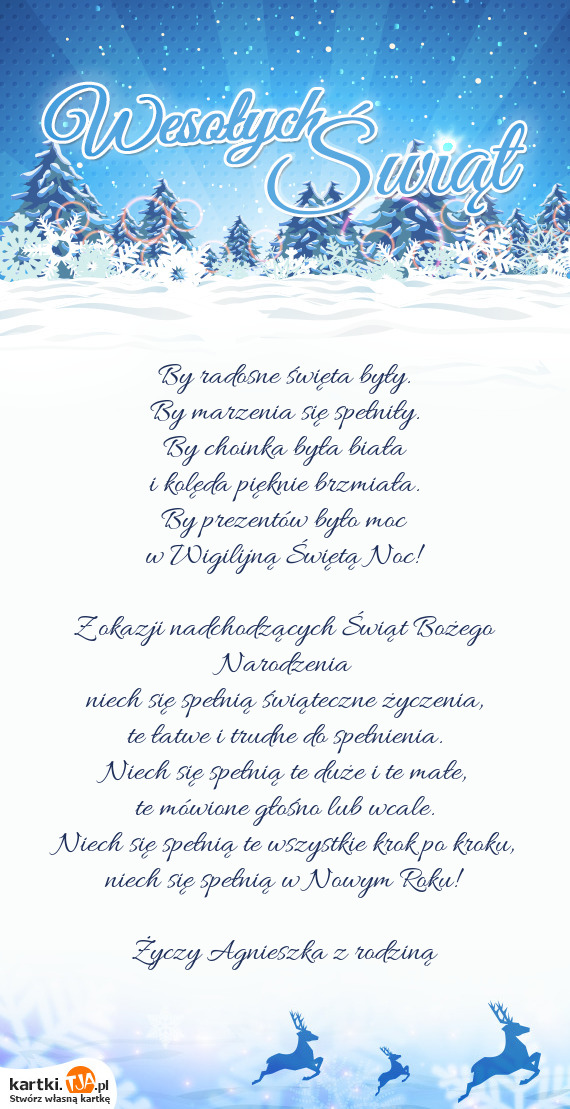 Wesołych
Świąt
By radosne święta były.
By marzenia się spełniły.
By choinka była biała
i kolęda pięknie brzmiała.
By prezentów było moc
w Wigilijną Świętą Noc!
Z okazji nadchodzących Świąt Bożego
Narodzenia
niech się spełnią świąteczne życzenia,
te łatwe i trudne do spełnienia.
Niech się spełnią te duże i te małe,
te mówione głośno lub wcale.
Niech się spełnią te wszystkie krok po kroku,
niech się spełnią w Nowym Roku!
Życzy Agnieszka z rodziną
kartki.TJA.pl
Stwórz własną kartkę